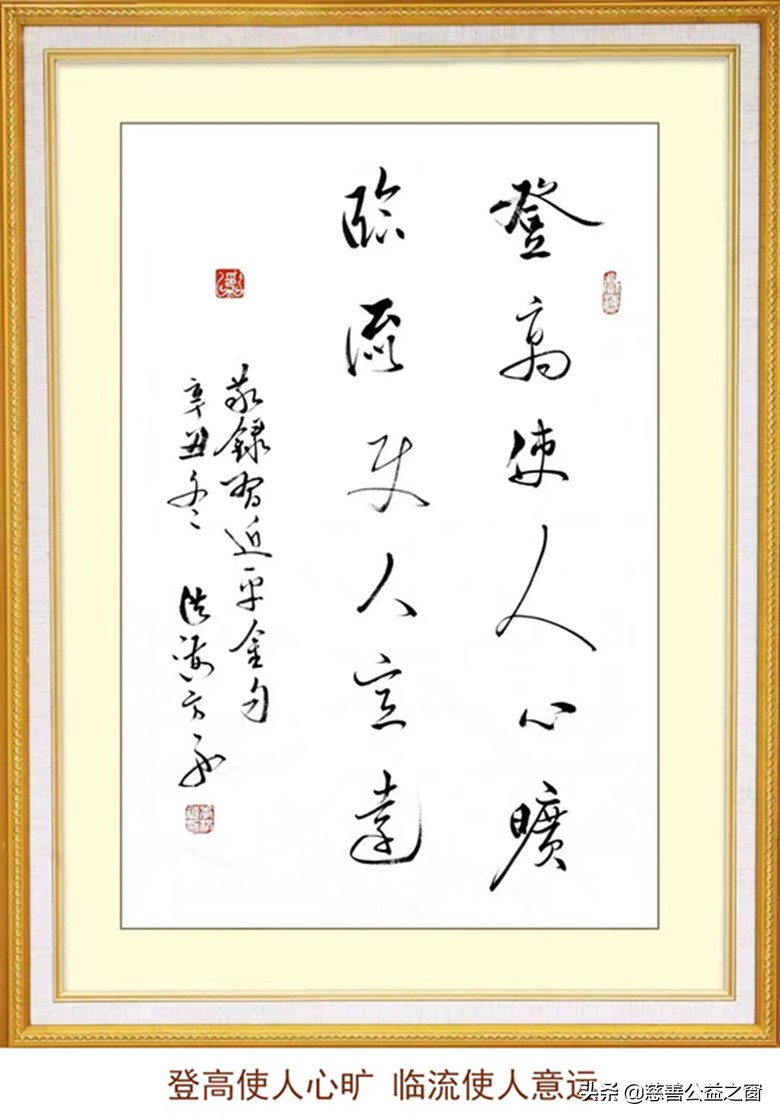 登高使人心曠
臨流使人意遠
敬録習近平金句
辛丑冬
登高使人心旷 临流使人意远
头条 @慈善公益之窗